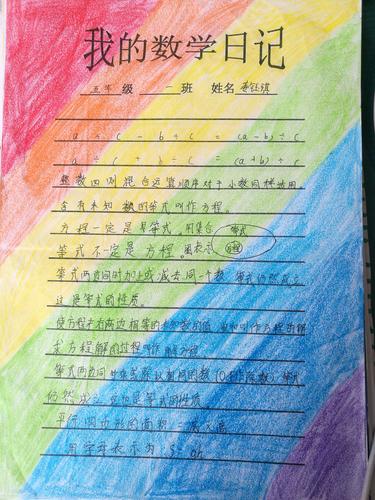 我的数学日记
五年级 一班 姓名
a ÷ c - b ÷ c = (a-b) ÷ c
a ÷ c + b ÷ c = (a+b) ÷ c
整数四则混合运算顺序对于小数同样适用。
含有未知数的等式叫作方程。
方程一定是等式,用集合 等式
等式不一定是方程。图表示 方程
等式两边同时加上或减去同一个数,等式仍然成立
这是等式的性质。
使方程左右两边相等的未知数的值,叫作方程的解
求方程解的过程叫作解方程
等式两边同时乘或除以相同的数(0不作除数),等式
仍然成立,这也是等式的性质
平行四边形的面积=底×高
用字母表示为 S=ah